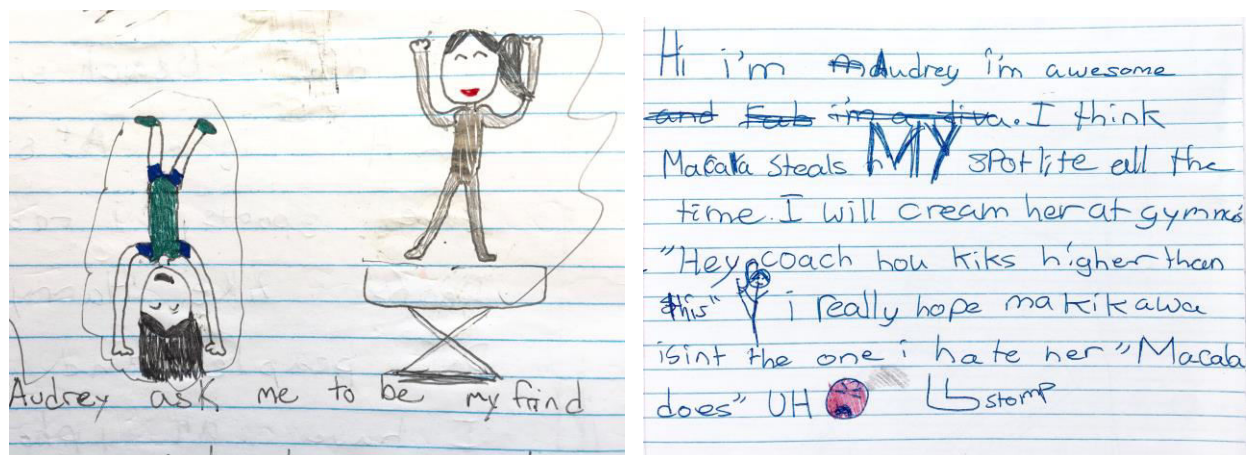 Audrey ask me to be my frind
Hi i'm Audrey i'm awesome
and Fab i'm a diva. I think
Macala Steals MY spotlite all the
time. I will cream her at gymnas
"Hey coach hou kiks higher than
this" i really hope makikawa
isint the one i hate her "Macala
does" UH stomp